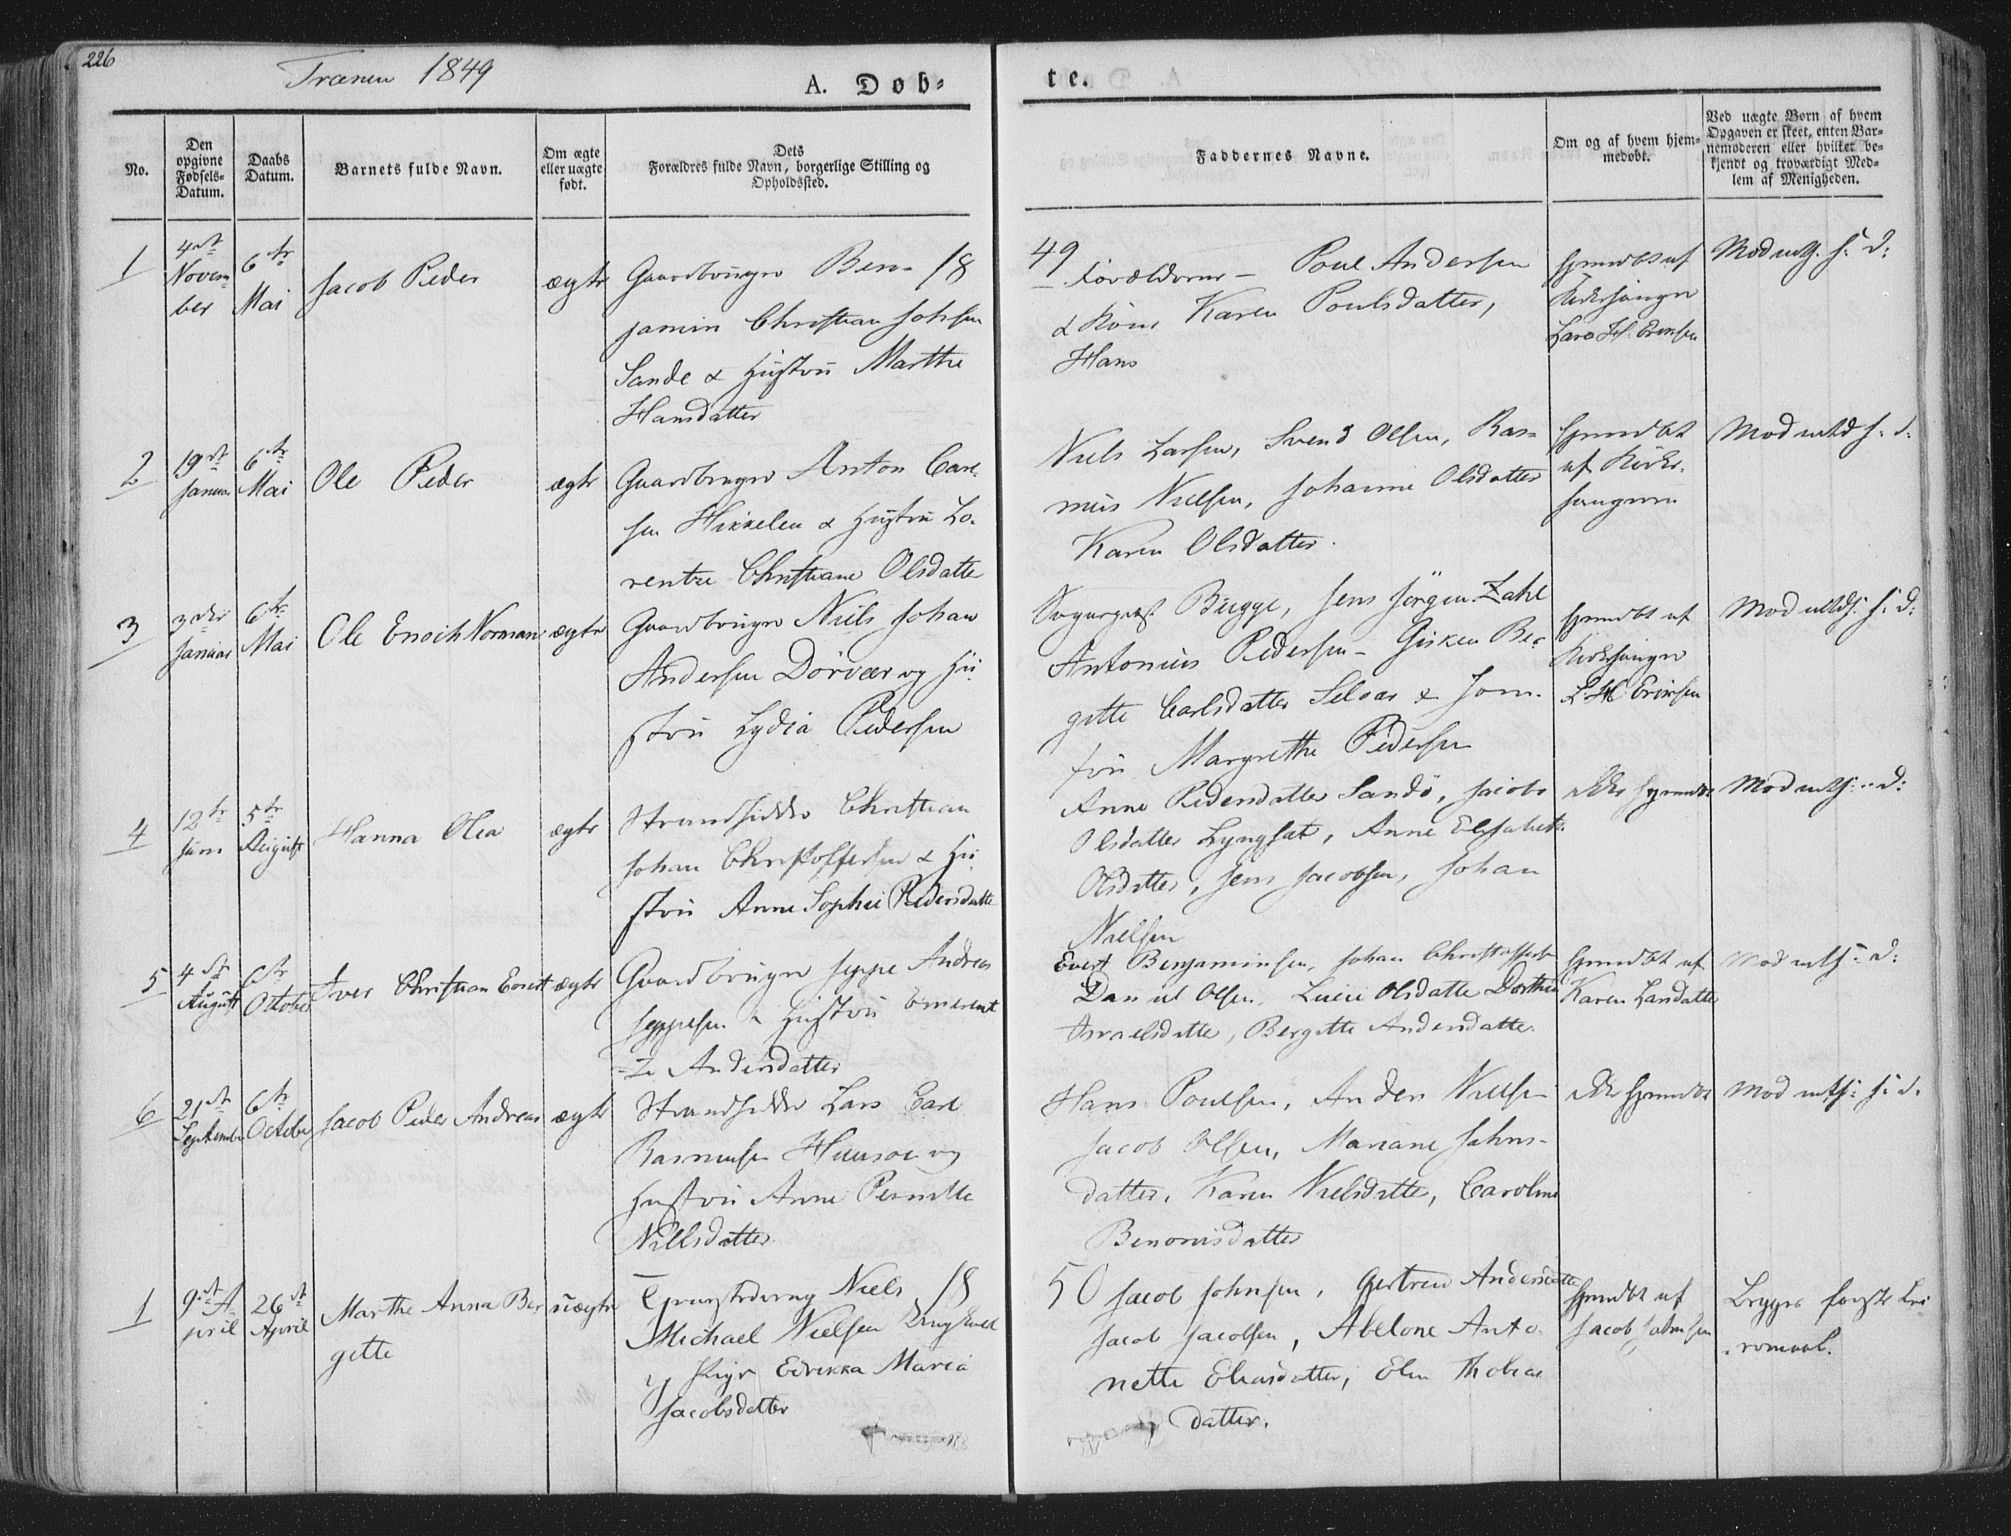 226
Trænen 1849
A. Døb-
te.
No.
Den opgivne Fødsels-Datum.
Daabs Datum.
Barnets fulde Navn.
Om ægte eller uægte født.
Dets Forældres fulde Navn, borgerlige Stilling og Opholdssted.
Faddernes Navne.
Om og af hvem hjem-medøbt.
Ved uægte Børn af hvem Opgaven er skeet, enten Bar-nemoderen eller hvilket be-kjendt og troværdigt Med-lem af Menigheden.
18
49
1
4de
Novem
ber
6te
Mai
Jacob Peder
ægte
Gaardbruger Ben-
jamin Christian Johsen
Sande & Hustru Marthe
Hansdatter
Forældrene - Poul Andersen
& Kone Karen Poulsdatter,
Hans
hjemdøbt af
Kirkesanger
Lars H. Eriksen
2
19de
Januar
6te
Mai
Ole Peder
ægte
Gaardbruger Anton Carl
sen Hikkelen & Hustru Lo-
rentze Christiane Olsdatter
Niels Larsen, Svend Olsen, Ras-
mus Nielsen, Johanne Olsdatter
Karen Olsdatter.
hjemdøbt
af Kirke-
sangeren
3
3die
Januar
6te
Mai
Ole Enoch Normann
ægte
Gaardbruger Niels Johan
Andersen Dörvær og Hu-
stru Lydia Pedersen
Bugge, Jens Jörgen Zahl
Antonius Pedersen - Gisken Ber-
gitte Carlsdatter Selvær & Jom-
fru Margrethe Pedersen
hjemdøbt af
Kirkesanger
L. H. Eriksen
4
12te
Juni
5te
August
Hanna Olea
ægte
Strandsidder Christian
Johan Christoffersen & Hu-
stru Anne Sophie Pedersdatter
Anne Pedersdatter Sandö, Jacob
Olsdatter Lyngsat, Anne Elisabeth
Olsdatter, Jens Jacobsen, Johan
Nielsen
ikke hjemdøbt
5
4de
August
6te
October
Iver Christian Evert
ægte
Gaardbruger Jeppe Andreas
Jeppesen & Hustru Emerent
ze Andersdatter
Evert Benjaminsen, Johan Christoffers
Daniel Olsen, Lucie Olsdatter Dorthea
Israelsdatter, Bergitte Andersdatter.
hjemdøbt af
Karen Larsdatter
6
21de
September
6te
October
Jacob Peder Andreas
ægte
Strandsidder Lars Carl
Rasmusen Huusøe og
Hustru Anne Pernille
Nillsdatter
Hans Poulsen, Anders Nielsen
Jacob Olsen, Mariane Johns-
datter, Karen Nielsdatter, Caroline
Benonisdatter
ikke hjemdøbt
18
50
1
9de A-
pril
26de
April
Marthe Anna Ber
gitte
uægte
Niels
Michael Nielsen
Pige Edrikka Maria
Jacobsdatter
Jacob Johnsen, Gjertrud Andersdatter
Jacob Jacobsen, Abelone Anto-
nette Eliasdatter, Elen Thobias
datter.
hjemdøbt af
Jacob Johnsen